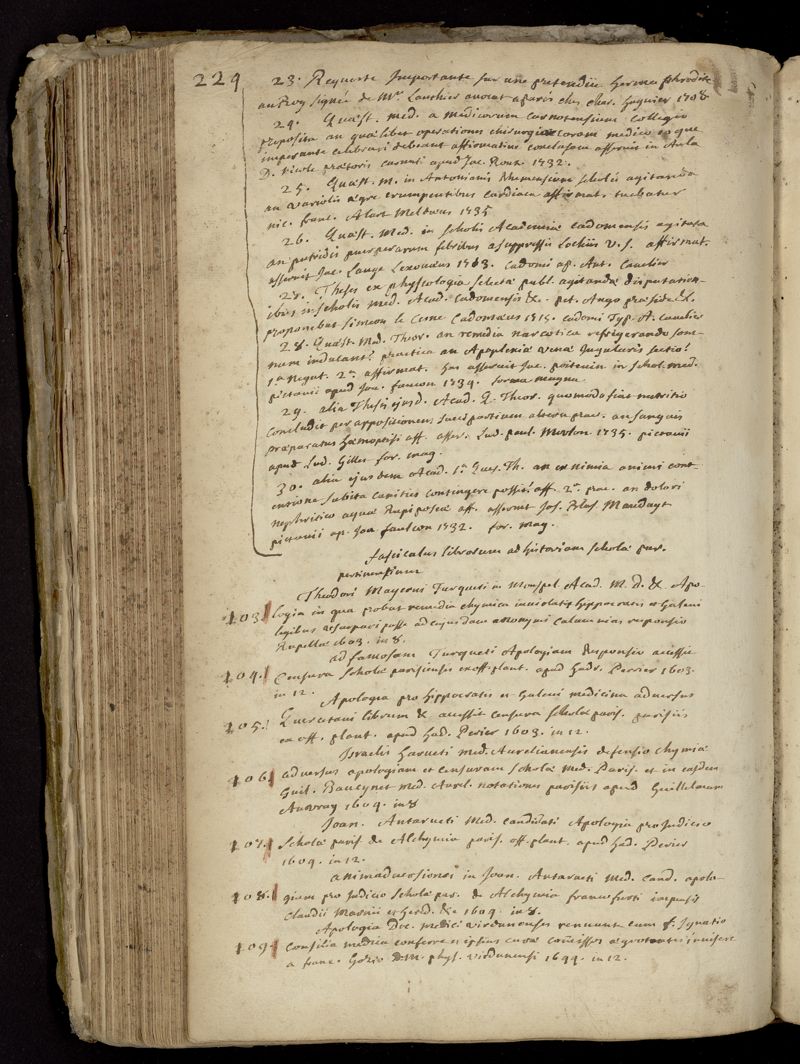 229
23. Requeste Importante sur une pretendüe hermaphrodite
au Roy signée de Mr. Lauthier avocat a paris ches char. huguier 1708
24. Quæst. med. a medicorum carnotensium collegio
proposita an quælibet operationes chirurgicæ coram medico eoque
imperante celebrari debeant affirmative conclusam asseruit in Aula
D. Nicole prætoris carnuti apud Jac. Roux 1732.
25. Quæst. M. in Antonianis Nemausensium scholis agitanda
an variolis ægre erumpentibus cardiaca affirmat. tuebatur
nic. franc. Alart Meldæus 1735
26. Quæst. Med. in scholis Academiæ cadomensis agitata
an putridis puerperarum febribus a suppressis lochiis V. S. affirmat.
asseruit Jac. Lange Lexovæus 1713. Cadomi ap. Ant. Cavelier
27. Theses ex physiologia selectæ publ. agitandæ disputation-
ibus in scholis Med. Acad. Cadomensis &c. pet. Ango præside &c.
proponebat simeon le Cerne Cadomæus 1715. cadomi Typ. A. Cavelier
28. Quæst. Med. Theor. an remedia narcotica refrigerando som-
num inducant? practica an Apoplexiæ venæ Jugularis sectio?
1a Negat. 2a. affirmat. has asseruit Jac. poitevin in schol. med.
pictavii apud Joa. faucon 1734. forma magna
29. alia Thesis ejusd. Acad. Q. Theor. quomodo fiat nutritio
concludit per appositionem succi partium altera prac. an sanguis
præparatus hæmoptisi aff. asser. Lud. paul. Merlon 1735. pictavii
apud Lud. Gilles for. mag.
30. alia ejusdem Acad. 1a. Quæs. Th. an ex nimia animi cont-
entione subita canities contingere possit? aff. 2a. prac. an dolori
nephritico aqua Rupiposæa aff. asseruit Jos. Mauduyt
pictavii ap. Joa faulcon 1732. for. mag.
fasciculus librorum ad historiam scholæ par.
pertinentium
Theodori Mayerni Turqueti in Monspel. Acad. M. D. &c. Apo-
103. logia in qua probat remedia chymica inviolatis hippocratis et Galeni
legibus usurpari posse ad cujusdam anonymi calumnias responsio
Rupellæ 1603. in 8.
ad famosam Turqueti Apologiam Responsio accessit
104. Censura scholæ parisiensis ex off. plant. apud hadr. Perier 1603.
in 12.
Apologia pro hippocratis et Galeni medicina adversus
105. Quercetani librum & accessit censura scholæ paris. parisiis
ex off. plant. apud had. Perier 1603. in 12.
Israelis harveti Med. Aurelianensis defensio chymiæ
106. adversus apologiam et censuram scholæ Med. Paris. et in easdem
Guil. Baucynet Med. Aurel. notationes parisiis apud Guillelmum
Auvray 1604. in 8
Joan. Antarveti Med. candidati Apologia pro Judicio
107. Scholæ paris. de Alchymia paris. off. plant. apud had. Perier
1604. in 12.
animadversiones in Joan. Antarveti Med. cand. apolo-
108. giam pro Judicio scholæ par. de Alchymia francofurti impensis
Claudii Marnii et hered. &c 1604. in 8.
Apologia Doc. Medici Virdunenses renuunt cum f. Ignatio
109. Consilia medica conferre et ipsius curæ commissos ægrotantes invisere
a franc. Gozio D.M. phys. virdunensi 1644. in 12.